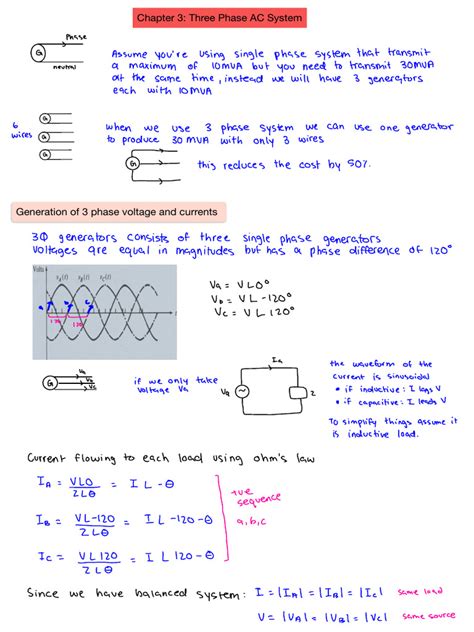 Chapter 3: Three Phase AC System
Phase
G
neutral
Assume you're using single phase system that transmit
a maximum of 10MVA but you need to transmit 30MVA
at the same time, instead we will have 3 generators
each with 10MVA
6
wires
G
G
G
when we use 3 phase system we can use one generator
to produce 30 MVA with only 3 wires
G
this reduces the cost by 50%.
Generation of 3 phase voltage and currents
3Φ generators consists of three single phase generators
voltages are equal in magnitudes but has a phase difference of 120°
Volts
vA(t) vB(t) vC(t)
a b c
120 120
t
Va = V∠0°
Vb = V∠-120°
Vc = V∠120°
G
Va
Vb
Vc
if we only take
voltage Va
IA
Va
Z
the waveform of the
current is sinusoidal
• if inductive: I lags V
• if capacitive: I leads V
To simplify things assume it
is inductive load.
Current flowing to each load using ohm's law
IA = V∠0 / Z∠θ = I∠-θ
IB = V∠-120 / Z∠θ = I∠-120-θ
IC = V∠120 / Z∠θ = I∠120-θ
+ve
sequence
a,b,c
Since we have balanced system: I = |IA| = |IB| = |IC| same load
V = |VA| = |VB| = |VC| same source